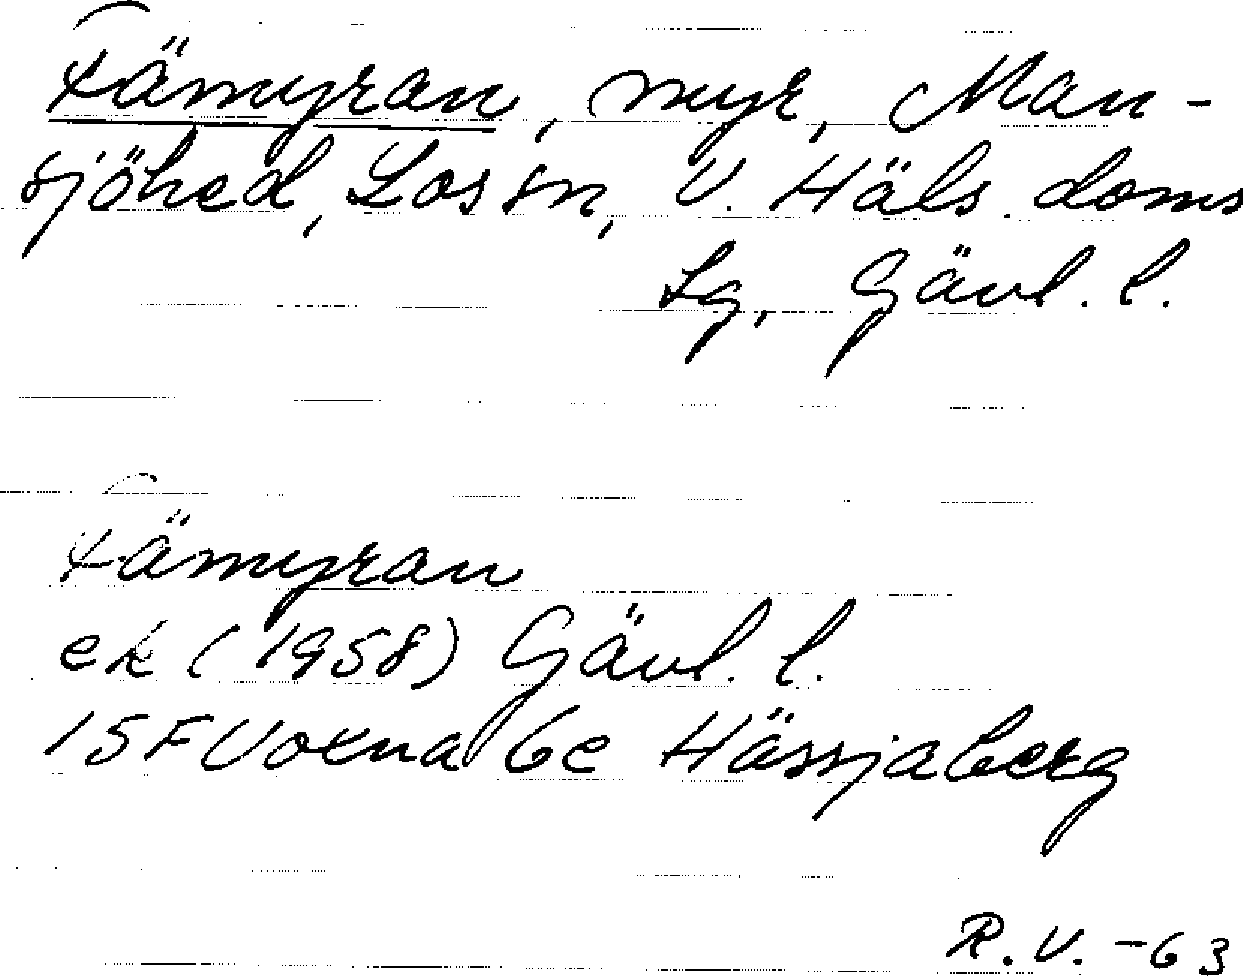 Fämyran, myr, Man-
sjöhed, Los sn, V. Häls. doms
Lg, Gävl. l.
Fämyran
ek (1958) Gävl. l.
15F Voxna 6e Hässjaberg
R.V. -63